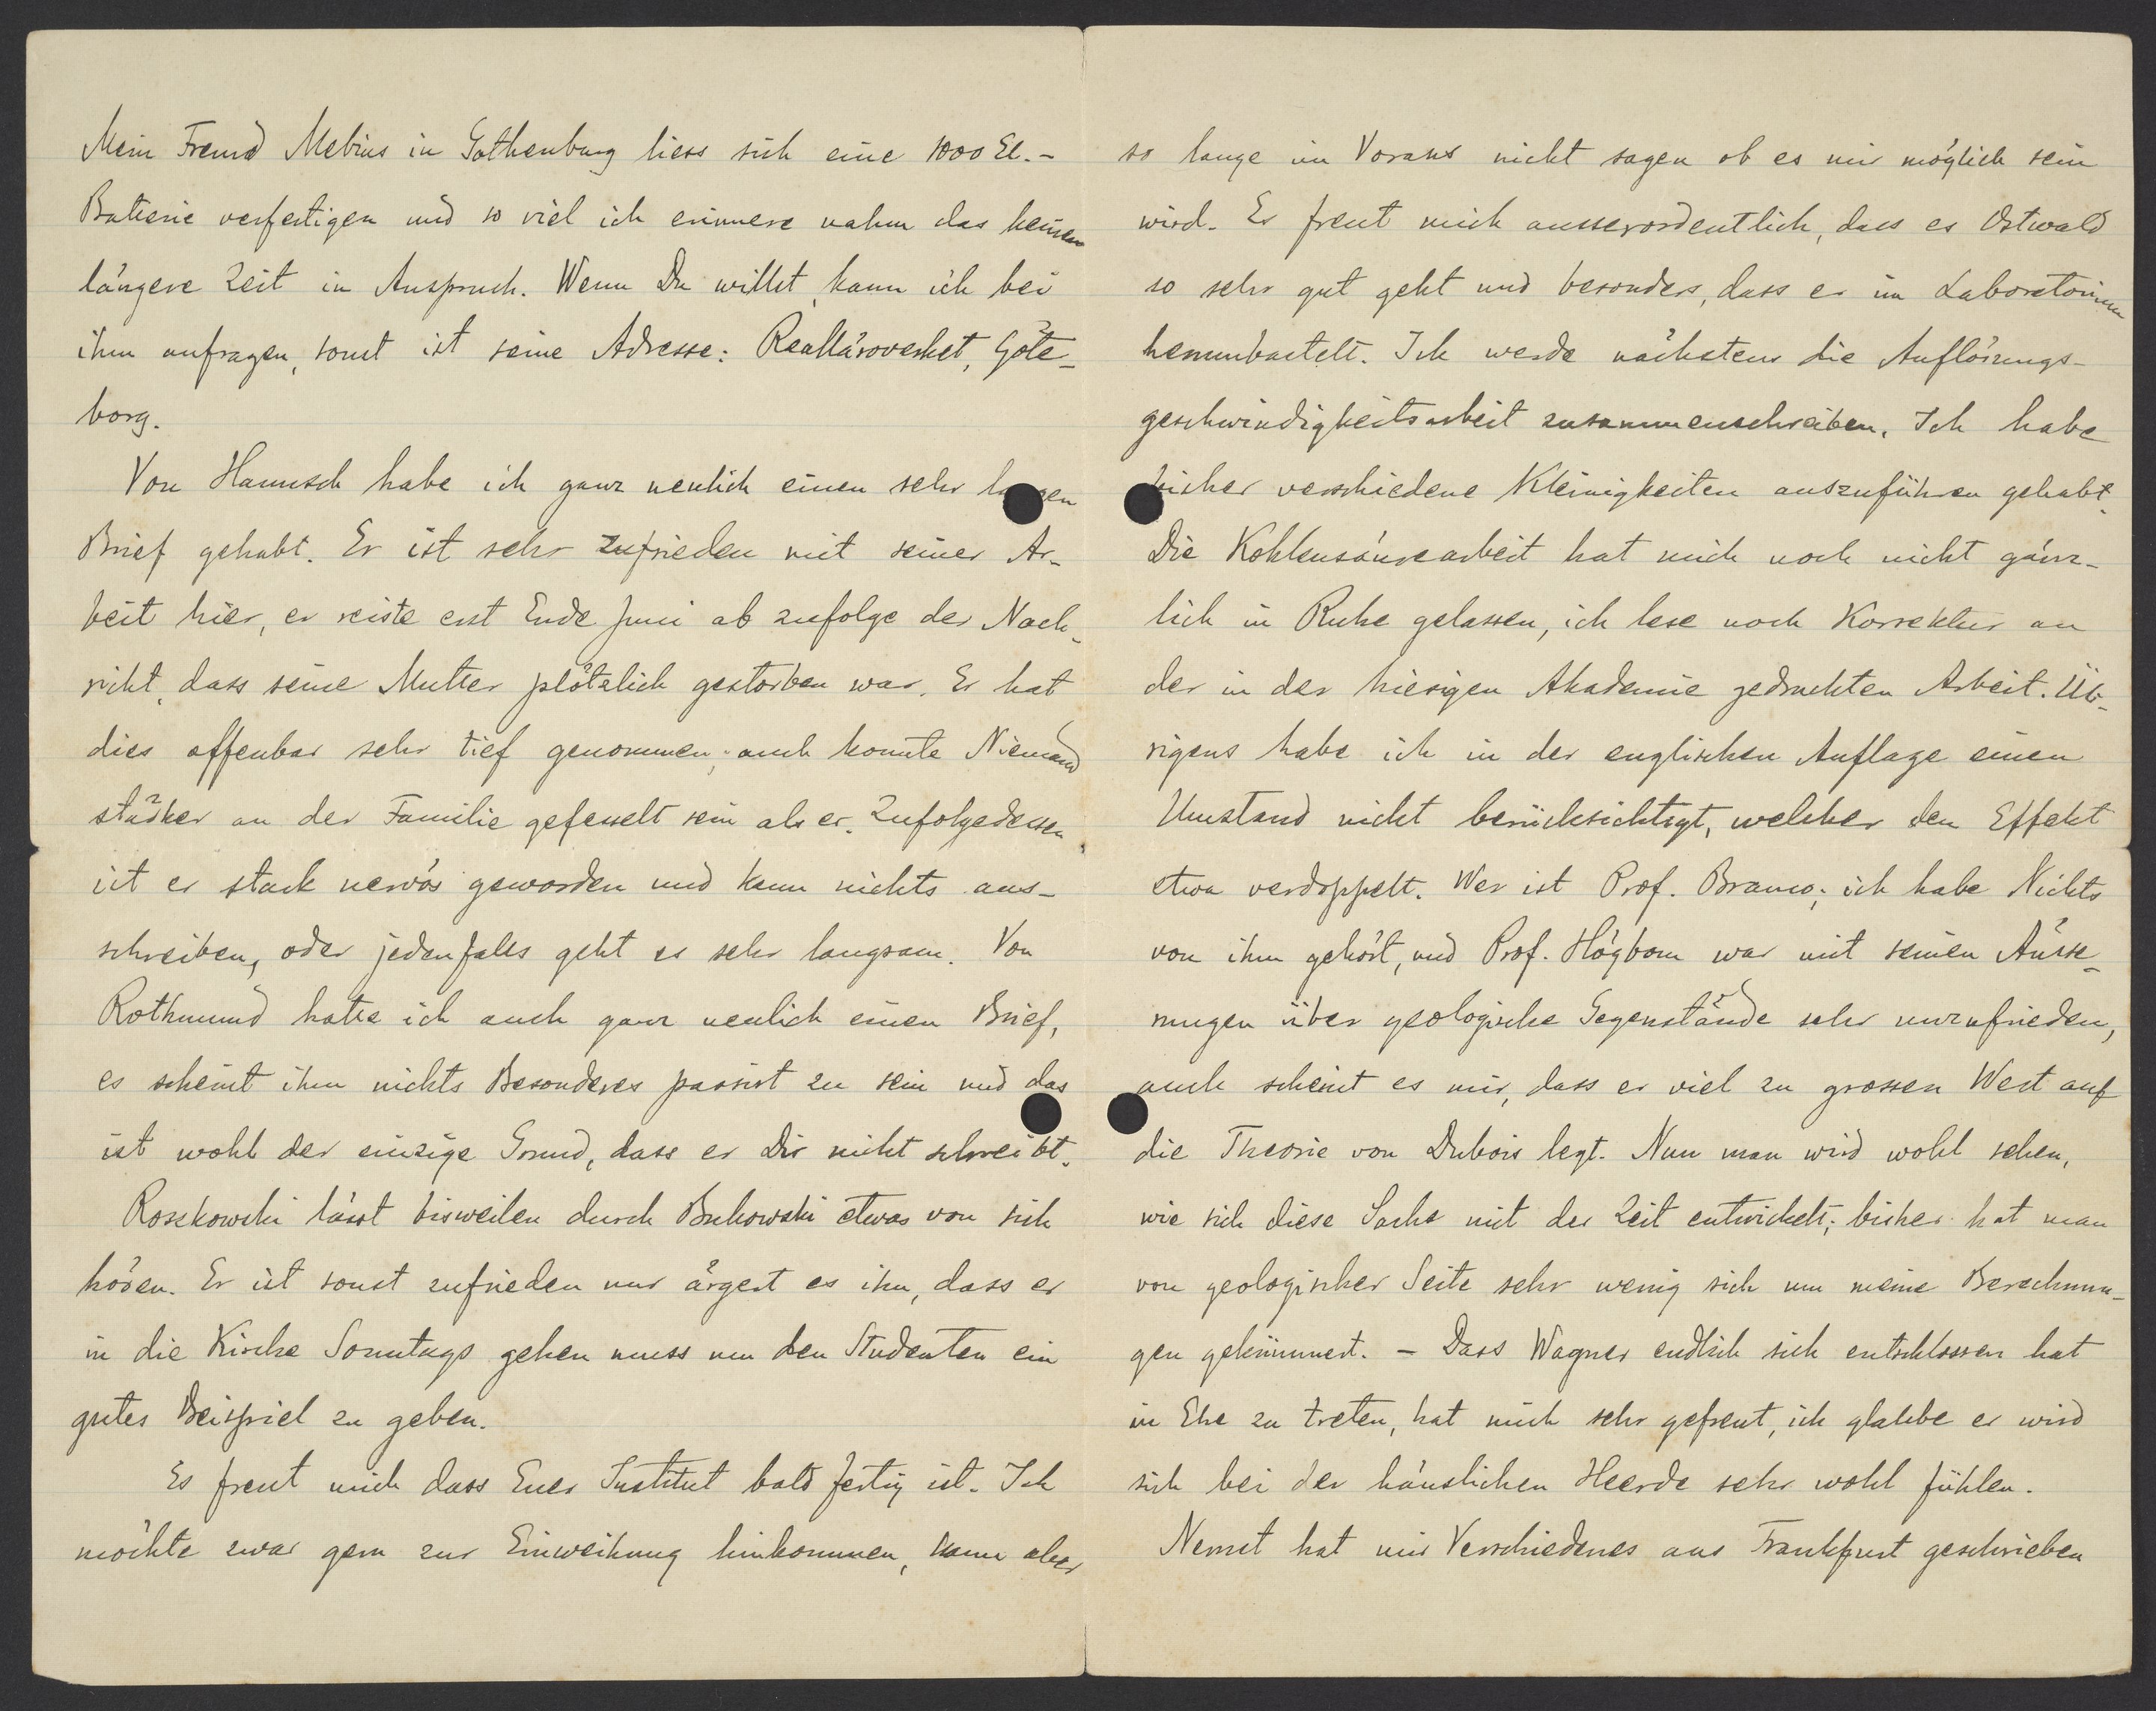 Mein Freund Mebius in Gothenburg liess sich eine 1000 El.-
Batterie verfertigen und so viel ich erinnere nahm das keinen
längere Zeit in Anspruch. Wenn Du willst, kann ich bei
ihm anfragen, sonst ist seine Adresse: Realläroverket, Göte-
borg.
Von Hannsch habe ich ganz neulich einen sehr langen
Brief gehabt. Er ist sehr zufrieden mit seiner Ar-
beit hier, er reiste erst Ende Juni ab zufolge der Nach-
richt, dass seine Mutter plötzlich gestorben war. Er hat
dies offenbar sehr tief genommen, auch konnte Niemand
stärker an der Familie gefesselt sein als er. Zufolgedessen
ist er stark nervös geworden und kann nichts aus-
schreiben, oder jedenfalls geht es sehr langsam. Von
Rothmund hatte ich auch ganz neulich einen Brief,
es scheint ihm nichts Besonderes passirt zu sein und das
ist wohl der einzige Grund, dass er Dir nicht schreibt.
Roszkowski lässt bisweilen durch Bukowski etwas von sich
hören. Er ist sonst zufrieden nur ärgert es ihn, dass er
in die Kirche Sonntags gehen muss um den Studenten ein
gutes Beispiel zu geben.
Es freut mich dass Euer Institut bald fertig ist. Ich
möchte zwar gern zur Einweihung hinkommen, kann aber
so lange im Voraus nicht sagen ob es mir möglich sein
wird. Es freut mich ausserordentlich, dass es Ostwald
so sehr gut geht und besonders, dass er im Laboratorium
herumbastelt. Ich werde nächstens die Auflösungs-
geschwindigkeitsarbeit zusammenschreiben. Ich habe
bisher verschiedene Kleinigkeiten auszuführen gehabt.
Die Kohlensäurearbeit hat mich noch nicht gänz-
lich in Ruhe gelassen, ich lese noch Korrektur an
der in der hiesigen Akademie gedruckten Arbeit. Üb-
rigens habe ich in der englischen Auflage einen
Umstand nicht berücksichtigt, welcher den Effekt
etwa verdoppelt. Wer ist Prof. Branco; ich habe Nichts
von ihm gehört, und Prof. Högbom war mit seinen Äusse-
rungen über geologische Gegenstände sehr unzufrieden,
auch scheint es mir, dass er viel zu grossen Wert auf
die Theorie von Dubois legt. Nun man wird wohl sehen,
wie sich diese Sache mit der Zeit entwickelt; bisher hat man
von geologischer Seite sehr wenig sich um meine Berechnun-
gen gekümmert. – Dass Wagner endlich sich entschlossen hat
in Ehe zu treten, hat mich sehr gefreut, ich glaube er wird
sich bei der häuslichen Heerde sehr wohl fühlen.
Nernst hat mir Verschiedenes aus Frankfurt geschrieben